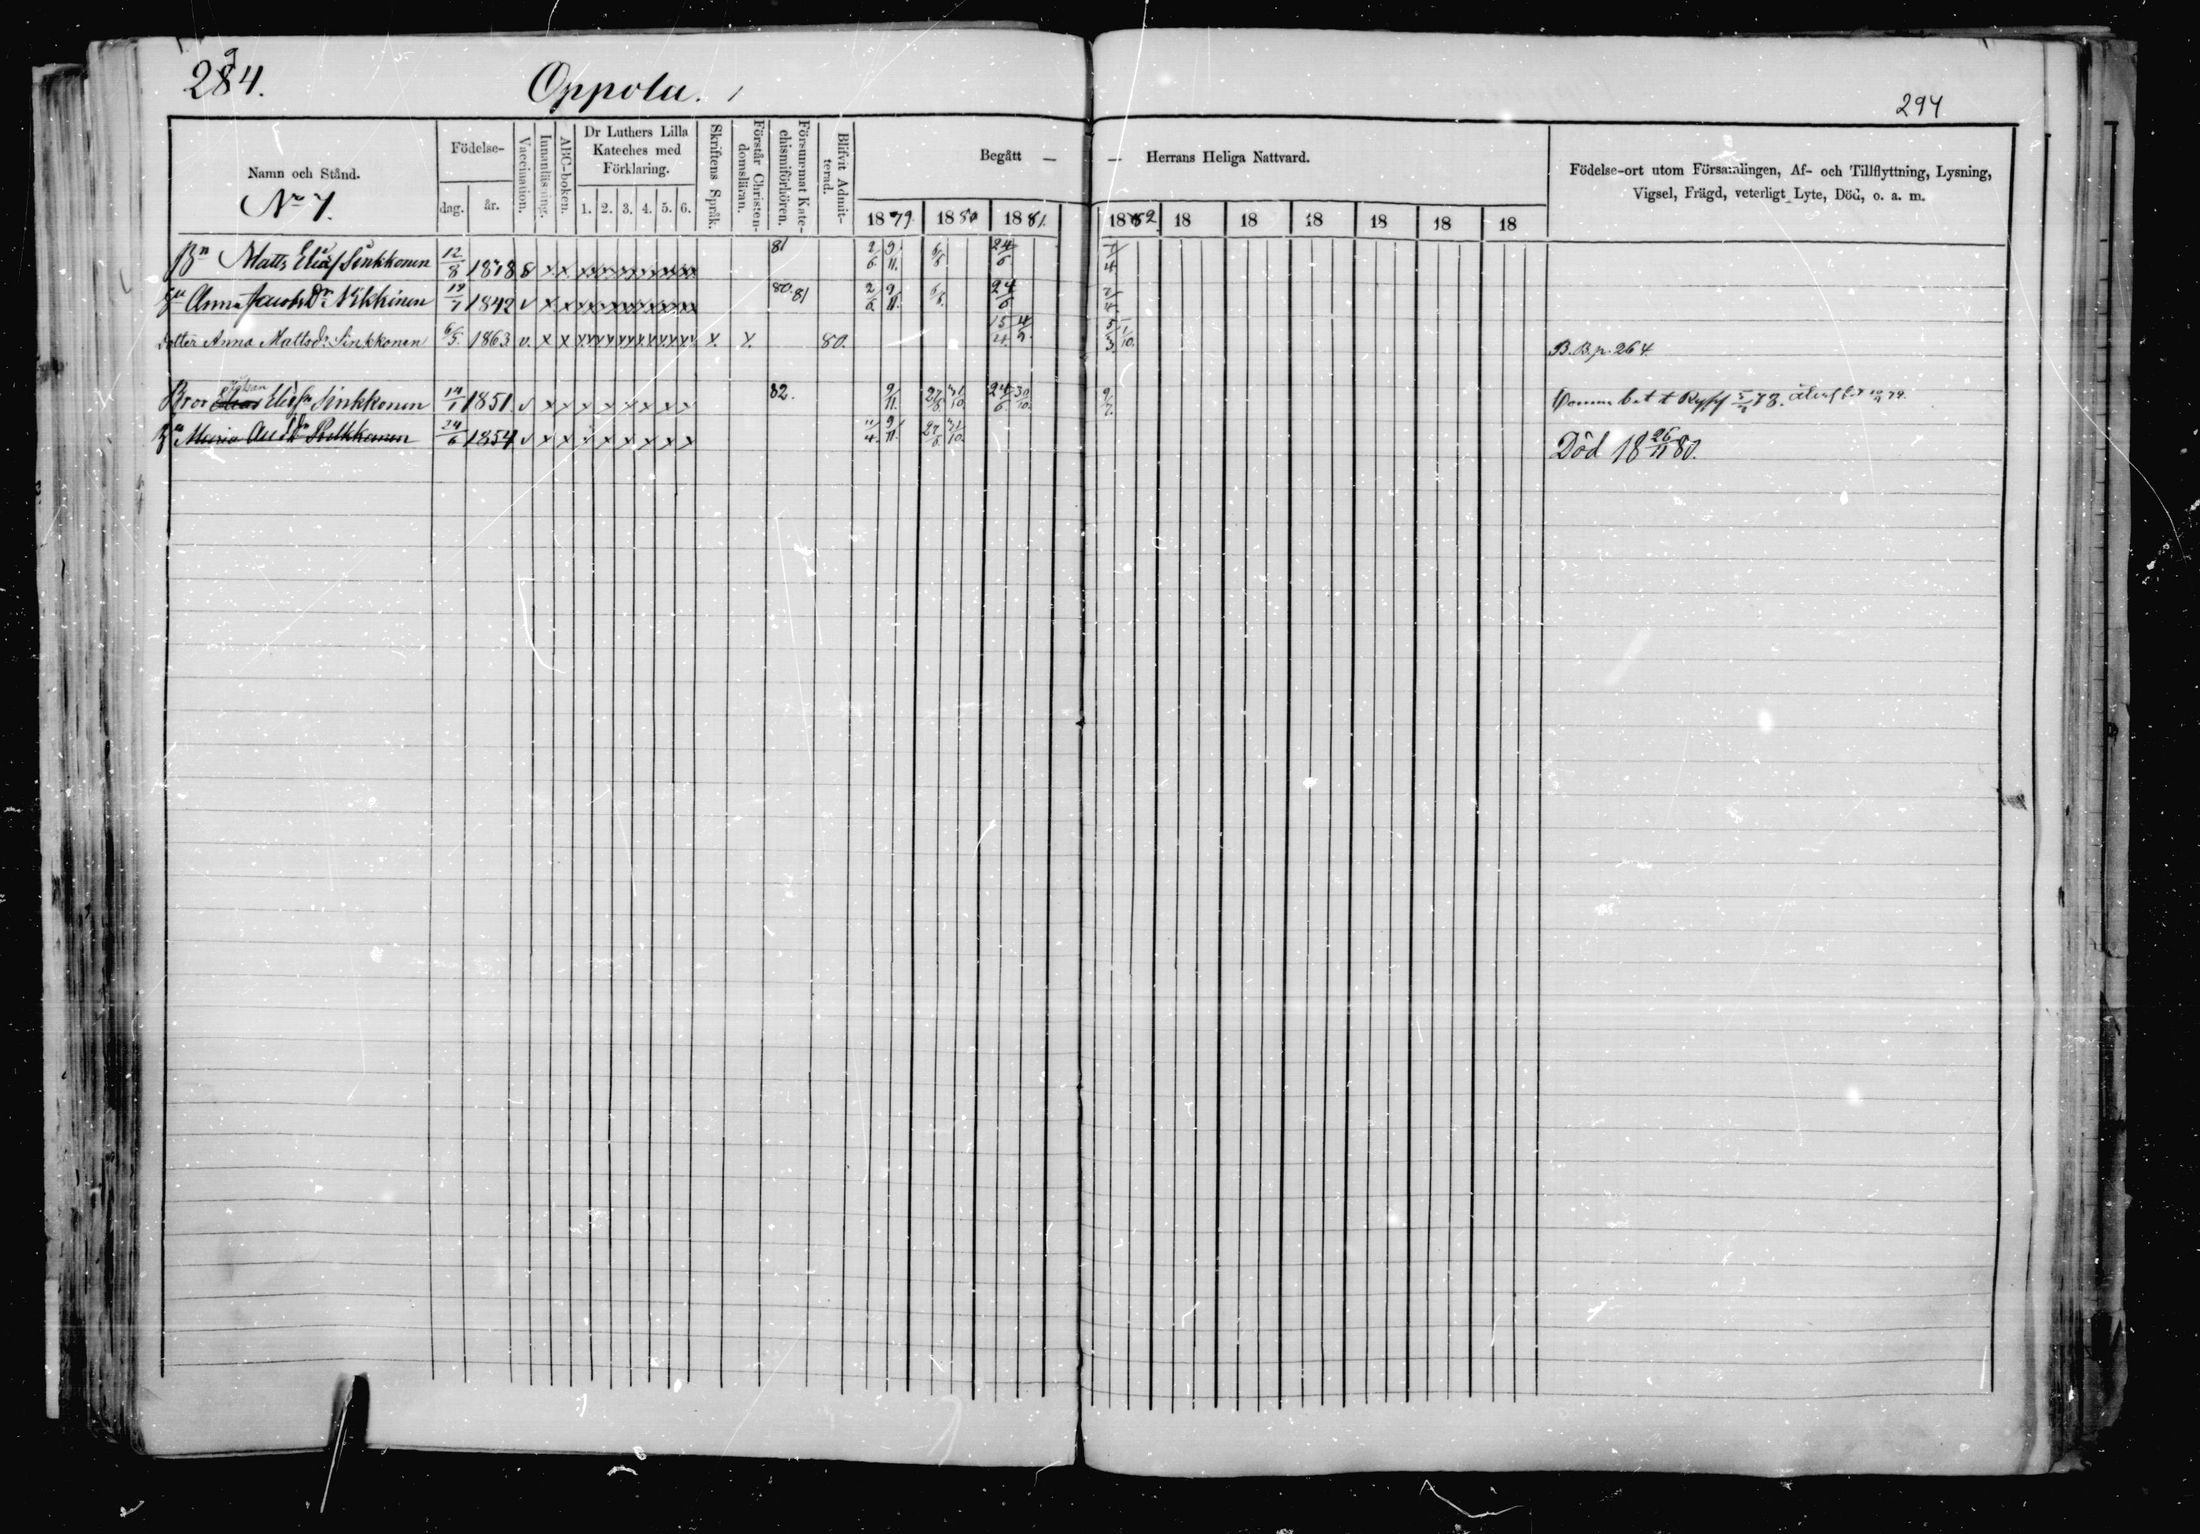 294.
Oppola.
294
Namn och Stånd.
No 7.
Födelse-
dag. år.
Vaccination.
Innanläsning.
ABC-boken.
Dr Luthers Lilla Kateches med Förklaring.
1. 2. 3. 4. 5. 6.
Skriftens Språk.
Förstår Christen-domsläran.
Försummat Kate-chismiförhören.
Blifvit Admit-terad.
Begått — — Herrans Heliga Nattvard.
1879. 1880 1881. 1882 18 18 18 18 18 18
Födelse-ort utom Församlingen, Af- och Tillflyttning, Lysning,
Vigsel, Frägd, veterligt Lyte, Död, o. a. m.
Bn Matts Eliasf Sinkkonen 12/8 1818 81 2/6 9/11. 6/6 24/6
Hu Anna Jacobs Dr Nikkinen 19/7 1842 v x x 80. 81 2/6 9/11. 6/6. 24/6
dotter Anna Mattsdr Sinkkonen 6/5. 1863 v. x x x. x. 80. 15/4. 4/9. 5/3 1/10. B. B. p. 264
Bror Johan Eliasf Sinkkonen 14/1 1851. v x x x x x x x x 82. 9/11. 27/6 31/10. 24/6 30/10. 9/7.
Hu Maria And. Dr Pulkkonen 24/6 1854 v x x x x x x x x 9/11. 27/6 31/10. Död 18 26/11 80.